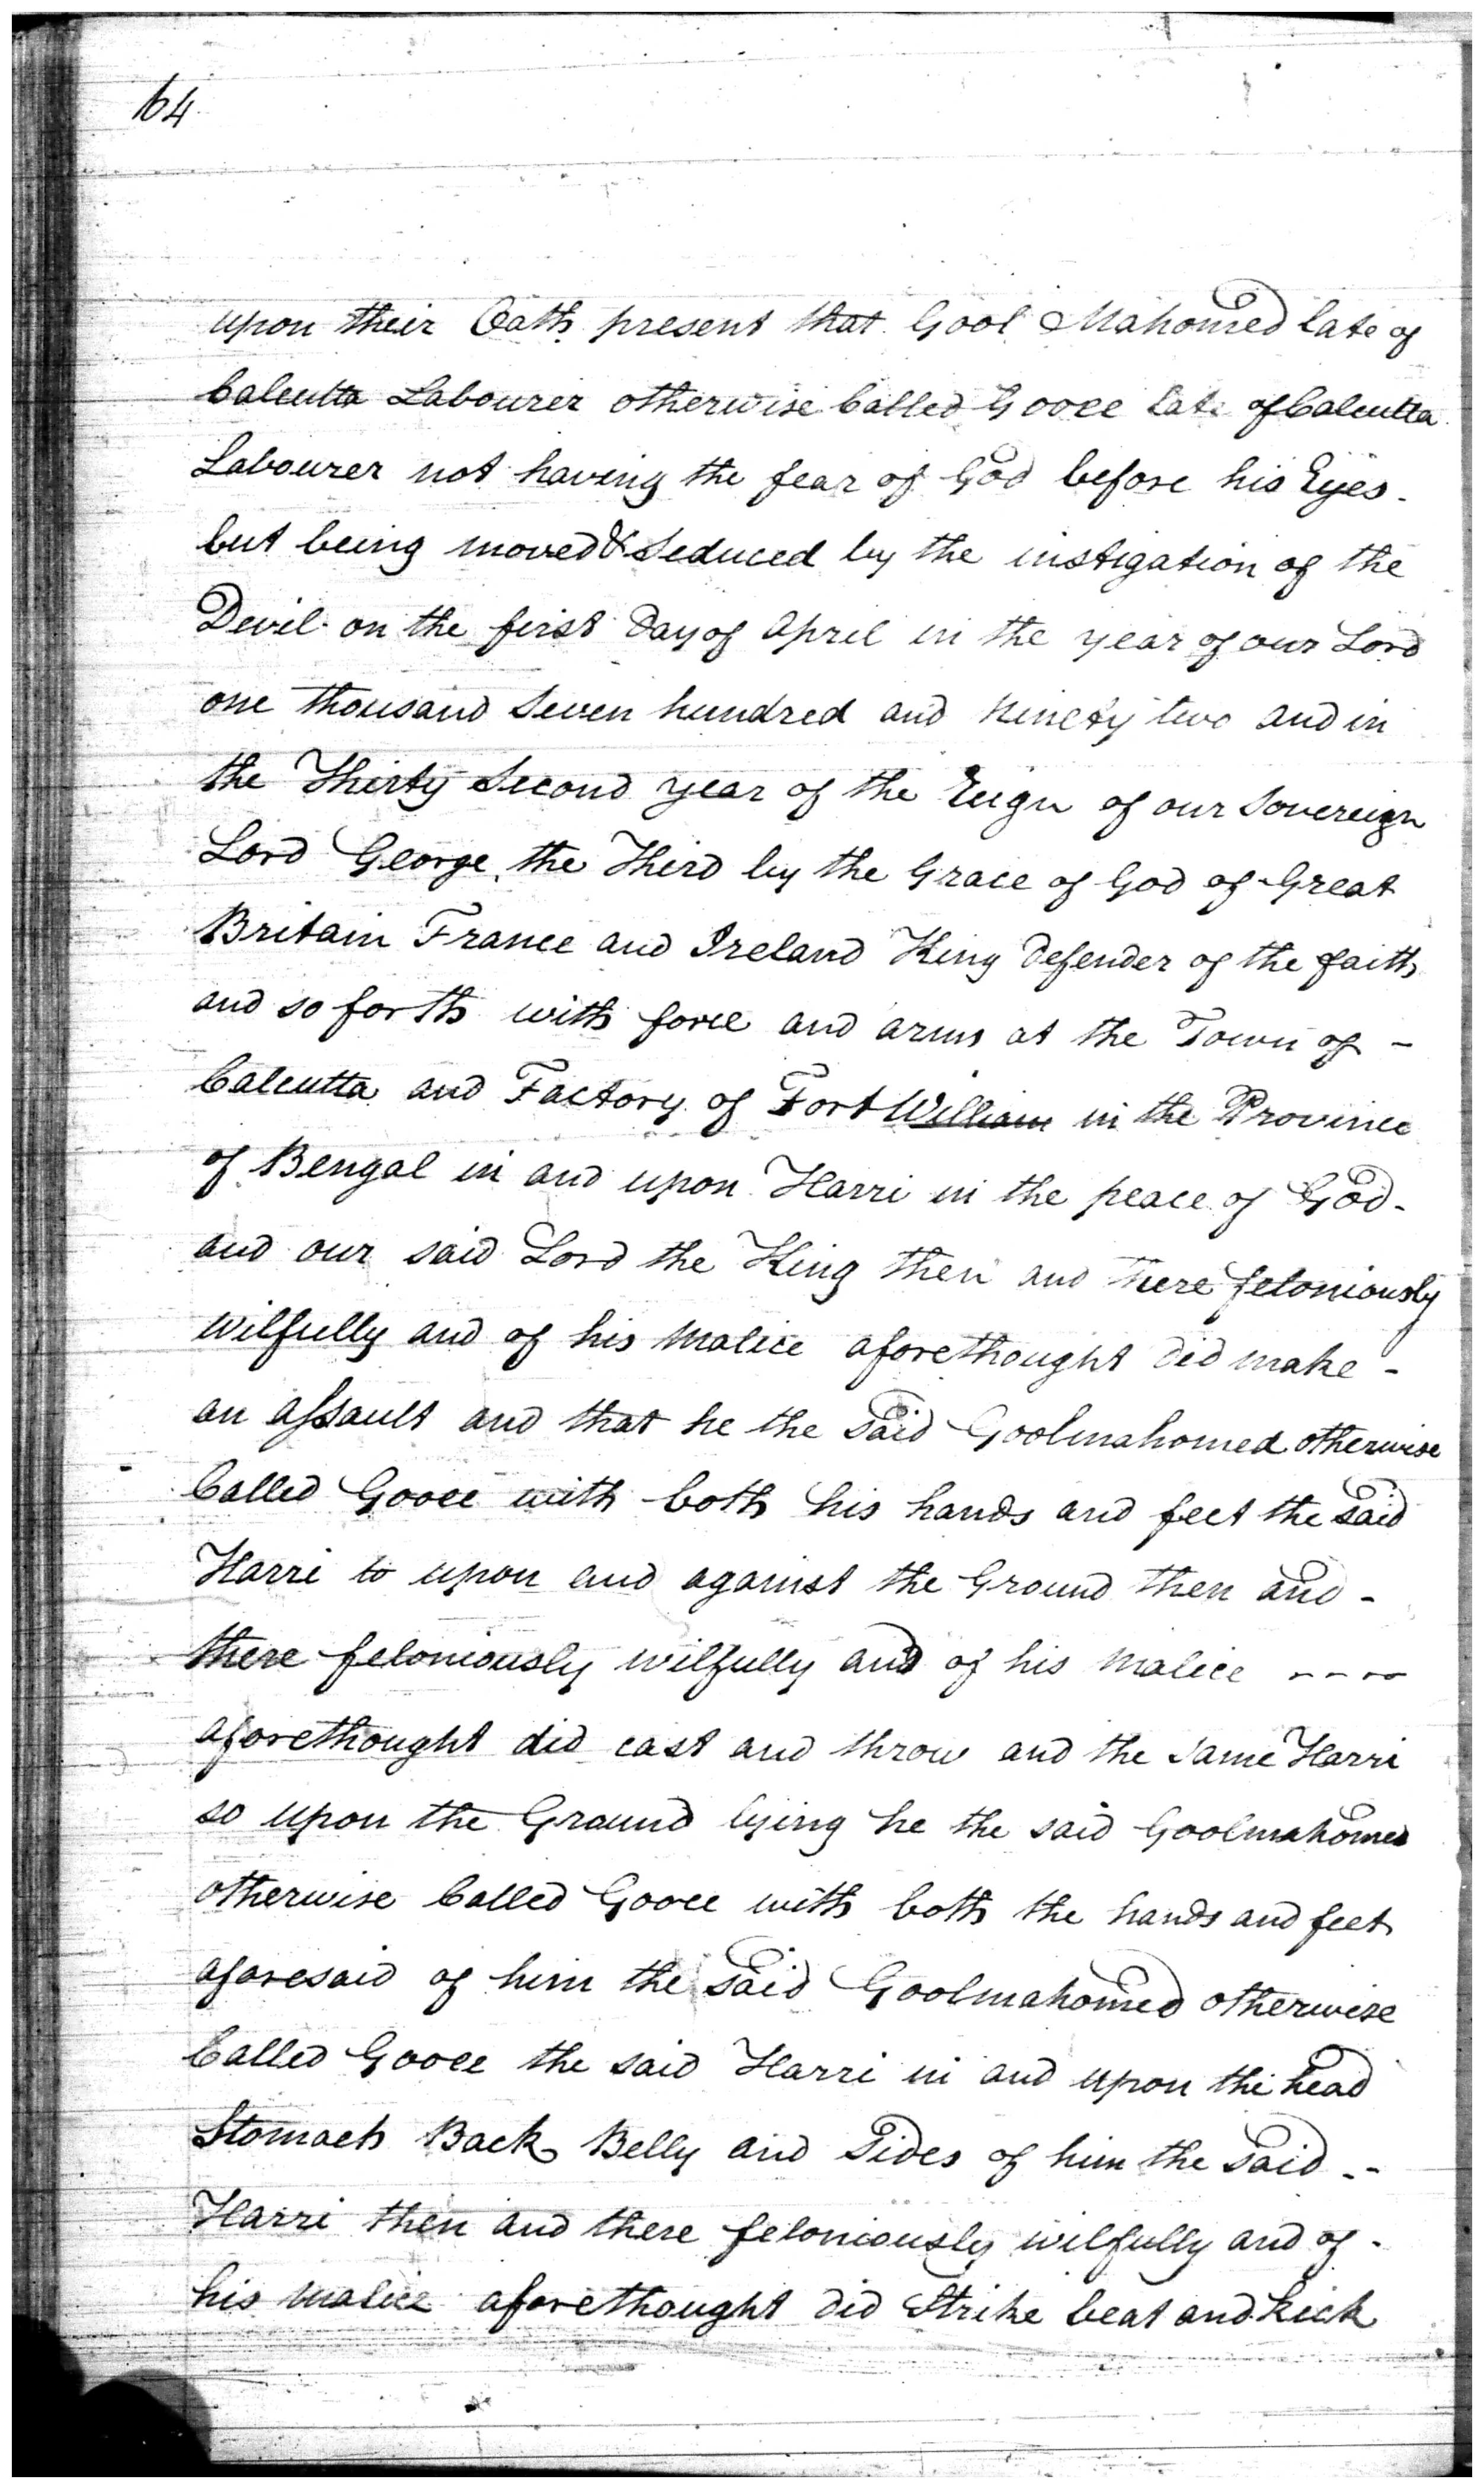 64
upon their Oath present that Gool Mahomed late of
Calcutta Labourer otherwise Called Gooll late of Calcutta
Labourer not having the fear of God before his Eyes -
but being moved & Seduced by the instigation of the
Devil on the first Day of April in the year of our Lord
one thousand Seven hundred and Ninety two and in
the Thirty Second year of the Reign of our Sovereign
Lord George the Third by the Grace of God of Great
Britain France and Ireland King Defender of the faith
and so forth with force and arms at the Town of -
Calcutta and Factory of Fort William in the Province
of Bengal in and upon Harri in the peace of God -
and our said Lord the King then and there feloniously
wilfully and of his Malice aforethought did make -
an assault and that he the Said Goolmahomed otherwise
Called Gooll with both his hands and feet the said
Harri to upon and against the Ground then and -
there feloniously wilfully and of his Malice ----
aforethought did cast and throw and the Same Harri
so upon the Ground lying he the said Goolmahomed
otherwise Called Gooll with both the hands and feet
aforesaid of him the said Goolmahomed otherwise
Called Gooll the said Harri in and upon the head
Stomach Back Belly and Sides of him the Said --
Harri then and there feloniously wilfully and of -
his Malice aforethought did Strike beat and kick